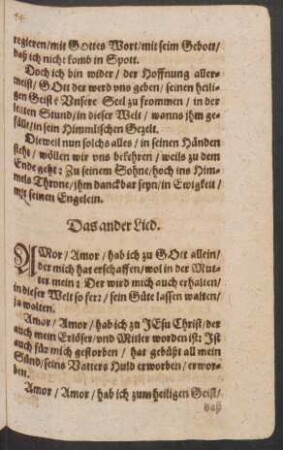 regieren/ mit Gottes Wort/ mit seim Gebott/
daß ich nicht komb in Spott.
Doch ich bin wider/ der Hoffnung aller-
meist/ GOtt der werd vns geben/ seinen heili-
gen Geist: Vnsere Seel zu frommen/ in der
letzten Stund/ in dieser Welt/ wanns ihm ge-
fällt/ in sein Himmlischen Gezelt.
Dieweil nun solchs alles/ in seinen Händen
steht/ wöllen wir vns bekehren/ weils zu dem
Ende geht: Zu seinem Sohne/ hoch ins Him-
mels Throne/ ihm danckbar seyn/ in Ewigkeit/
mit seinen Engelein.
Das ander Lied.
AMor/ Amor/ hab ich zu GOtt allein/
der mich hat erschaffen/ wol in der Mut-
ter mein: Der wird mich auch erhalten/
in dieser Welt so fer:/ sein Güte lassen walten/
ja walten.
Amor/ Amor/ hab ich zu JEsu Christ/ der
auch mein Erlöser/ vnd Mitler worden ist: Ist
auch für mich gestorben/ hat gebüßt all mein
Sünd/ seins Vatters Huld erworben/ erwor-
ben.
Amor/ Amor/ hab ich zum heiligen Geist/
daß